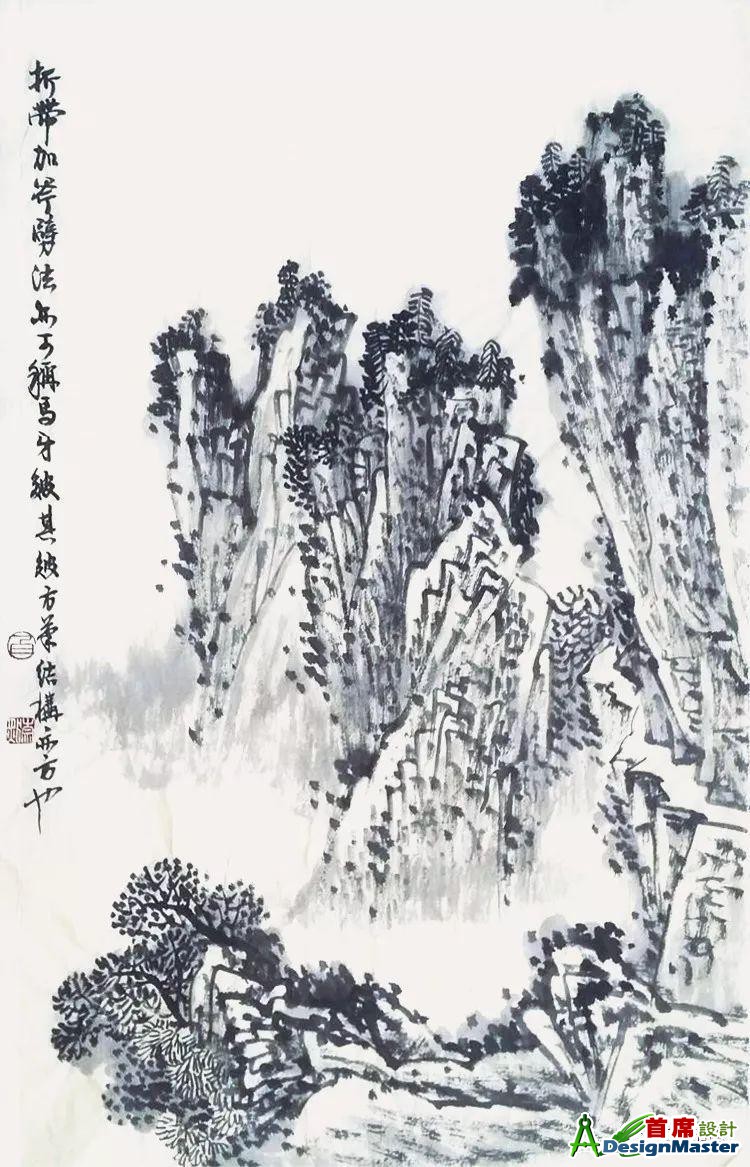 折帶加斧劈法亦可稱馬牙皴其皴方筆結構亦方也
首席設計
ADesignMaster